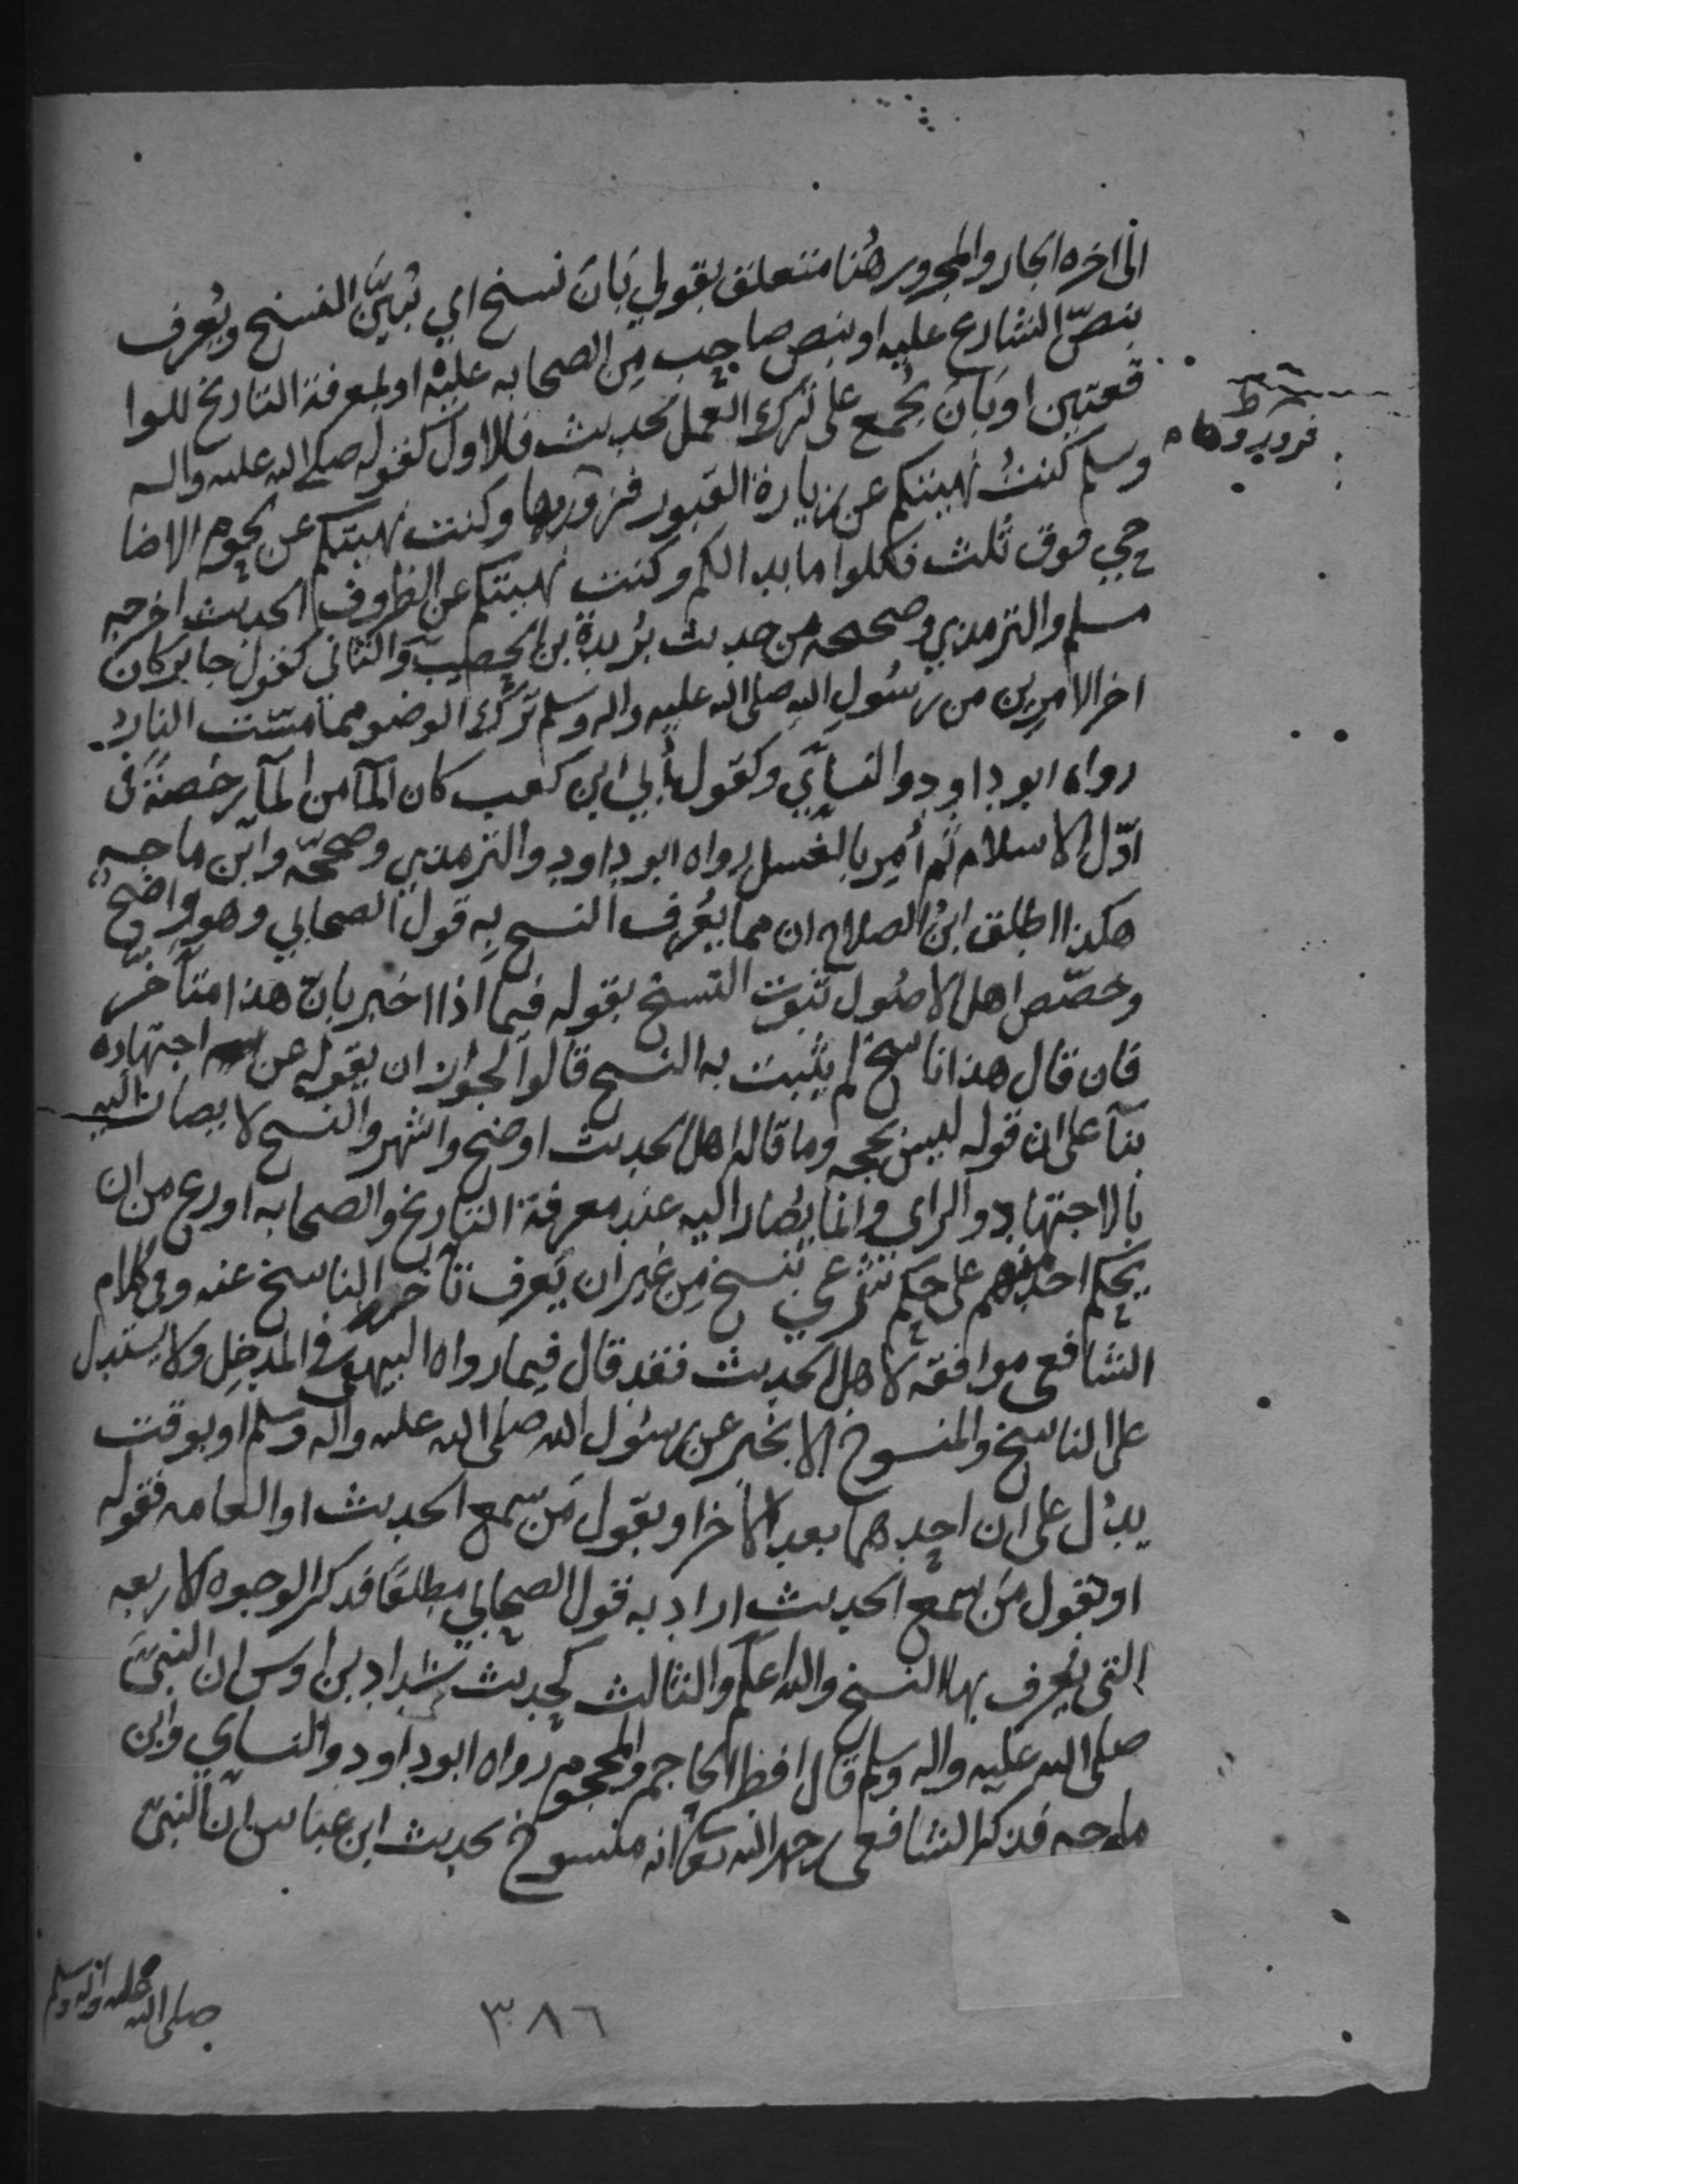 الى اخره الجار والمجرور هُنا متعلق بقولي بَانَ نسخ اي تبيَّن النسخ ويُعرف
بنصّ الشارع عليه او بنص صاحِب مِن الصحابه عليْه او لمعرفة التاريخ للوا
قعتين او بَانَ يُجمع على تَرك العمل بحديث فالاول كقوله صلى الله عليه واله
وسلم كنتُ نهيتكم عن زيارة القبور فزوروها وكنت نهيتكم عن لحوم الاضا
حي فوق ثلث فكلوا ما بدا لكم وكنت نهيتكم عن الظروف الحديث اخرجه
مسلم والترمذي وصححه من حديث بُريدة بن الحصيب والثاني كقول جابر كان
اخر الامرين من رسُولِ الله صلى الله عليه واله وسلم تَرْك الوضو مما مسّت النارُ
رواه ابو داود والنسآي وكقول أُبي ابن كعب كان المآ من المآ رخصةً فى
اوّل الاسلام ثم أُمِر بالغسل رواه ابو داود والترمذي وصححّه وابن ماجه
هكذا اطلق ابنُ الصلاح ان مما يُعرف النسخ بِه قول الصحابي وهو واضح
وخصّص اهل الاصُول ثبوت النسخ بقوله فيما اذا اخبر بانّ هذا متأخر
فان قال هذا ناسخ لم يثبت به النسخ قالوا لجواز ان يقوله عن اجتهاده
بنآ على ان قوله ليس بحجه وما قاله اهل الحديث اوضح واشهر والنسخ لا يصار اليه
بالاجتهاد والراي وانما يُصار اليه عند معرفة التاريخ والصحابه اورع من ان
يحكم احد منهم على حكم شرعي بنسخ مِن غير ان يَعرف تأخر الناسخ عنه وفي كلام
الشافعي موافقة لاهل الحديث فقد قال فيما رواه البيهقي في المدخل ولا يستدل
على الناسخ والمنسوخ الا بخبر عن رسُول الله صلى الله عليه واله وسلم او بوقت
يدُل على ان احدهما بعد الاخر او بقول مَن سمع الحديث او العامه فقوله
او بقول مَن سمع الحديث اراد به قول الصحابي مطلقًا فذكر الوجوه الاربعه
التي يُعرف بها النسخ والله اعلم والثالث كحديث شداد بن اوس ان النبيَّ
صلى الله عليه واله وسلم قال افطر الحاجم والمحجوم رواه ابو داود والنساي وابن
ماجه فذكر الشافعي رحمه الله تعا انه منسوخ بحديث ابن عباس ان النبيّ
فزوروها
صلى الله عليه واله وسلم
٣٨٦